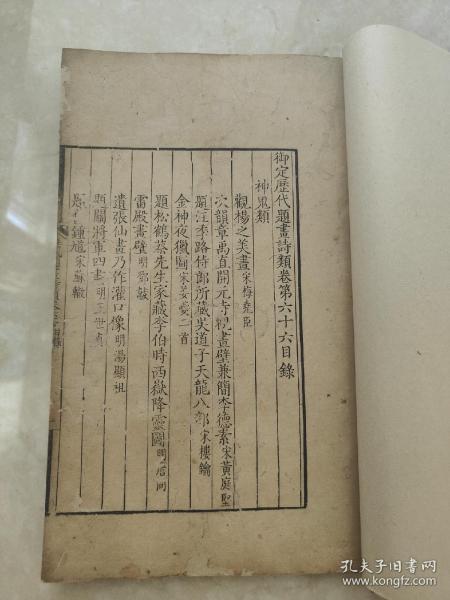 御定歷代題畫詩類卷第六十六目錄
神鬼類
觀楊之美畫宋梅堯臣
次韻章禹直開元寺觀畫壁兼簡李德素宋黃庭堅
題汪季路侍郎所藏吳道子天龍八部宋樓鑰
金神夜獵圖宋姜夔二首
題松鶴蔡先生家藏李伯時西嶽降靈圖明
雷殿畫壁明鄧黻
遺張仙畫乃作灌口像明湯顯祖
題關將軍四畫明王世貞
題鍾馗宋蘇轍
孔夫子旧书网
www.kongfz.com